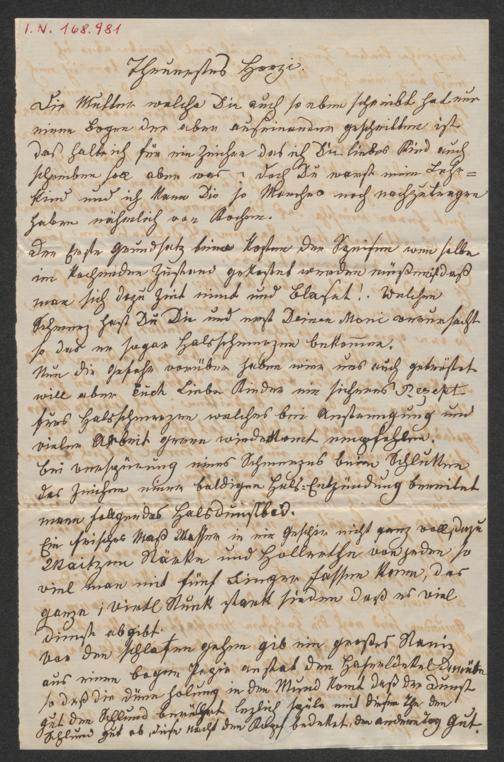 I.N. 168.981
Theuerstes Herzi.
Die Mutter welche Dir auch soeben schreibt hat nur
einen Bogen der aber auseinander geschnitten ist
das halte ich für ein Zeichen das ich Dir liebes Kind auch
schreiben soll aber was? doch Du warst mein Lehr=
kind und ich kann Dir so Manches noch nachzutragen
haben nähmlich von Kochen.
Der Erste Grundsatz beim Kosten der Speisen wen selbe
im kochenden Zustand gekostet werden müssen ist daß
man sich dazu Zeit nimt und Blaset! Welchen
Schmerz hast Du Dir und erst Deinen verursacht
so das er sogar Halsschmerzen bekommen.
Nun die Gefahr vorüber haben wir uns auch getröstet
will aber Euch Liebe Kinder ein sicheres Rezept
fürs Halsschmerzen welches bei Anstrengung und
vieler Arbeit gerne wiederkomt empfehlen.
Bei verspürung eines Schmerzes beim Schlukken
das Zeichen einer baldigen Hals=Entzündung bereitet
man folgendes Halsdunstbad.
Ein frisches Maß Wasser in ein Geschir nicht ganz voll, dazu
Waitzen Stärke und von jeden so
viel man mit fünf Finger fassen kann, das
ganze 1 Viertl Stunk stark sieden daß es viel
Dunst abgibt.
Vor den schlafen gehen gib ein großes Staniz
aus einen bogen Papir anstat den
so daß die düne in den Mund komt daß der Dunst
gut den Schlund lezlich spüle mit diesen den
Schlund gut ab, diese nacht den Kopf bedekt, den andern Tag gut.